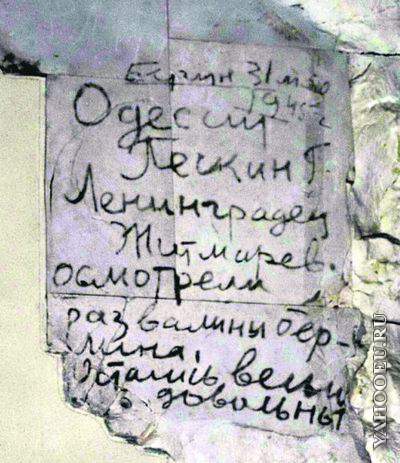 Берлин 31 мая
1945 г
Одессит
Печкин Г.
Ленинградец
Житмарев.
осмотрели
развалины бер-
лина,
остались весьм
ь довольны
YAHOOEU.RU